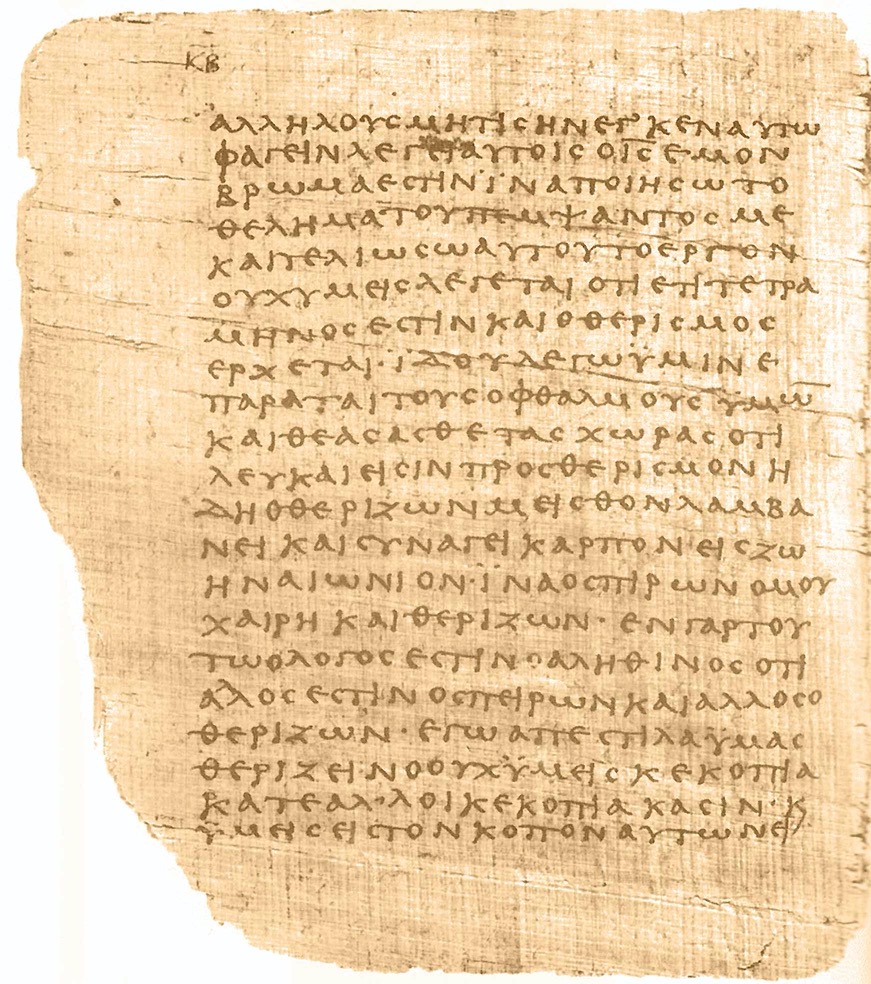 ΚΒ
ΑΛΛΗΛΟΥϹΜΗΤΙϹΗΝΕΓΚΕΝΑΥΤΩ
ΦΑΓΕΙΝΛΕΓΕΙΑΥΤΟΙϹΟΙ̅Ϲ̅ΕΜΟΝ
ΒΡΩΜΑΕϹΤΙΝΪΝΑΠΟΙΗϹΩΤΟ
ΘΕΛΗΜΑΤΟΥΠΕΜΨΑΝΤΟϹΜΕ
ΚΑΙΤΕΛΙΩϹΩΑΥΤΟΥΤΟΕΡΓΟΝ
ΟΥΧΥΜΕΙϹΛΕΓΕΤΑΙΟΤΙΕΤΙΤΕΤΡΑ
ΜΗΝΟϹΕϹΤΙΝΚΑΙΟΘΕΡΙϹΜΟϹ
ΕΡΧΕΤΑΙ·ΪΔΟΥΛΕΓΩΫΜΙΝΕ
ΠΑΡΑΤΑΙΤΟΥϹΟΦΘΑΛΜΟΥϹΫΜΩ̅
ΚΑΙΘΕΑϹΑϹΘΕΤΑϹΧΩΡΑϹΟΤΙ
ΛΕΥΚΑΙΕΙϹΙΝΠΡΟϹΘΕΡΙϹΜΟΝΗ
ΔΗΟΘΕΡΙΖΩΝΜΕΙϹΘΟΝΛΑΜΒΑ
ΝΕΙΚΑΙϹΥΝΑΓΕΙΚΑΡΠΟΝΕΙϹΖΩ
ΗΝΑΙΩΝΙΟΝ·ΪΝΑΟϹΠΙΡΩΝΟΜΟΥ
ΧΑΙΡΗΚΑΙΘΕΡΙΖΩΝ·ΕΝΓΑΡΤΟΥ
ΤΩΟΛΟΓΟϹΕϹΤΙΝΟΑΛΗΘΙΝΟϹΟΤΙ
ΑΛΟϹΕϹΤΙΝΟϹΠΕΙΡΩΝΚΑΙΑΛΛΟϹΟ
ΘΕΡΙΖΩΝ·ΕΓΩΑΠΕϹΤΙΛΑΫΜΑϹ
ΘΕΡΙΖΕΙΝΟΟΥΧΫΜΕΙϹΚΕΚΟΠΙΑ
ΚΑΤΕΑΛ·ΛΟΙΚΕΚΟΠΙΑΚΑϹΙΝ·Κ
ΫΜΕΙϹΕΙϹΤΟΝΚΟΠΟΝΑΥΤΩΝΕΙ